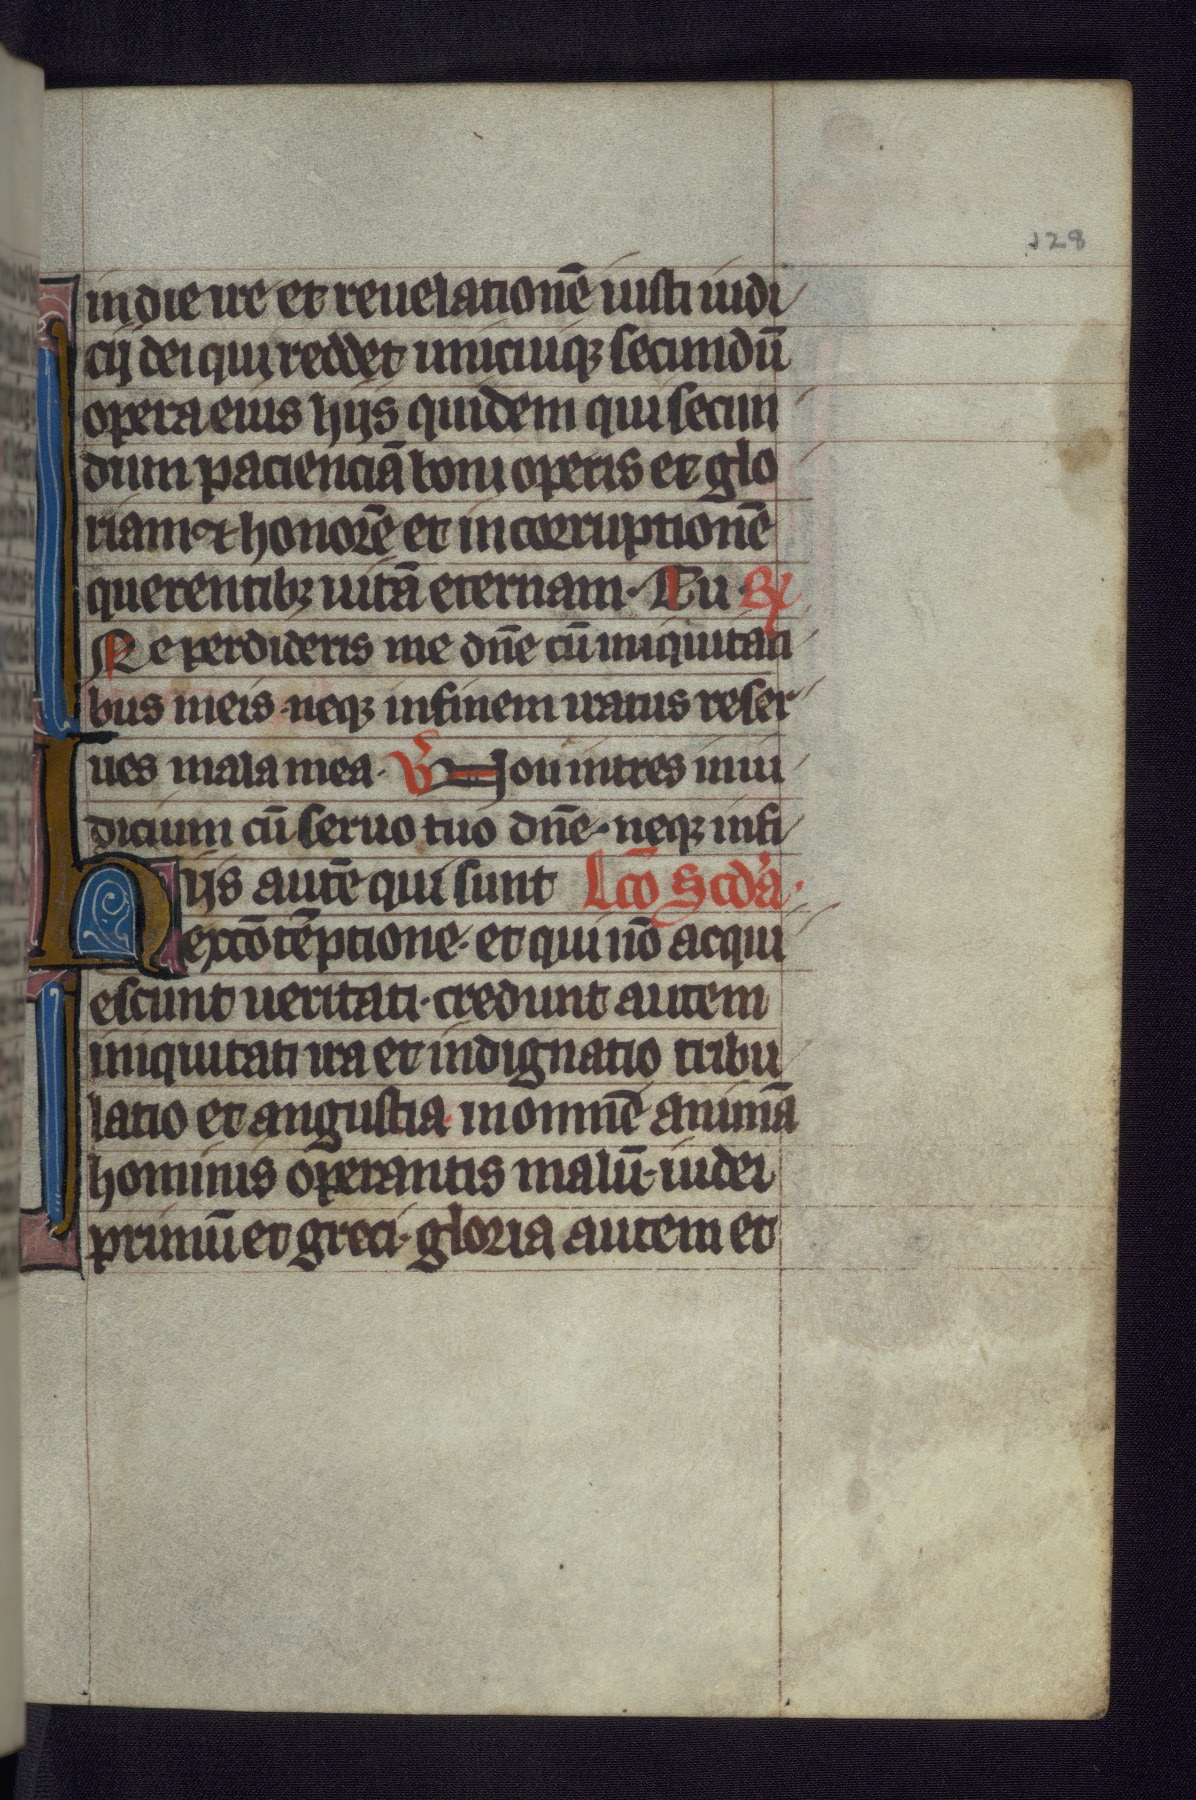 128
in die ire et reuelationē iusti iudi
cij dei qui reddet unicuiqꝫ secundū
opera eius hijs quidem qui secun
dum pacienciā boni operis et glo
riam ⁊ honorē et incorruptionē
querentibꝫ uitā eternam. Tu. ℟
Ne perdideris me dn̄e cū iniquitati
bus meis. neqꝫ in finem iratus reser
ues mala mea. ℣ Non intres in iu
dicium cū seruo tuo dn̄e. neqꝫ in fi
Hijs autē qui sunt Lc̄o Scd'a.
ex cōtēptione. et qui nō acqui
escunt ueritati. credunt autem
iniquitati ira et indignatio tribu
latio et angustia in omnē animā
hominis operantis malū. iudei
primū et greci. gloria autem et